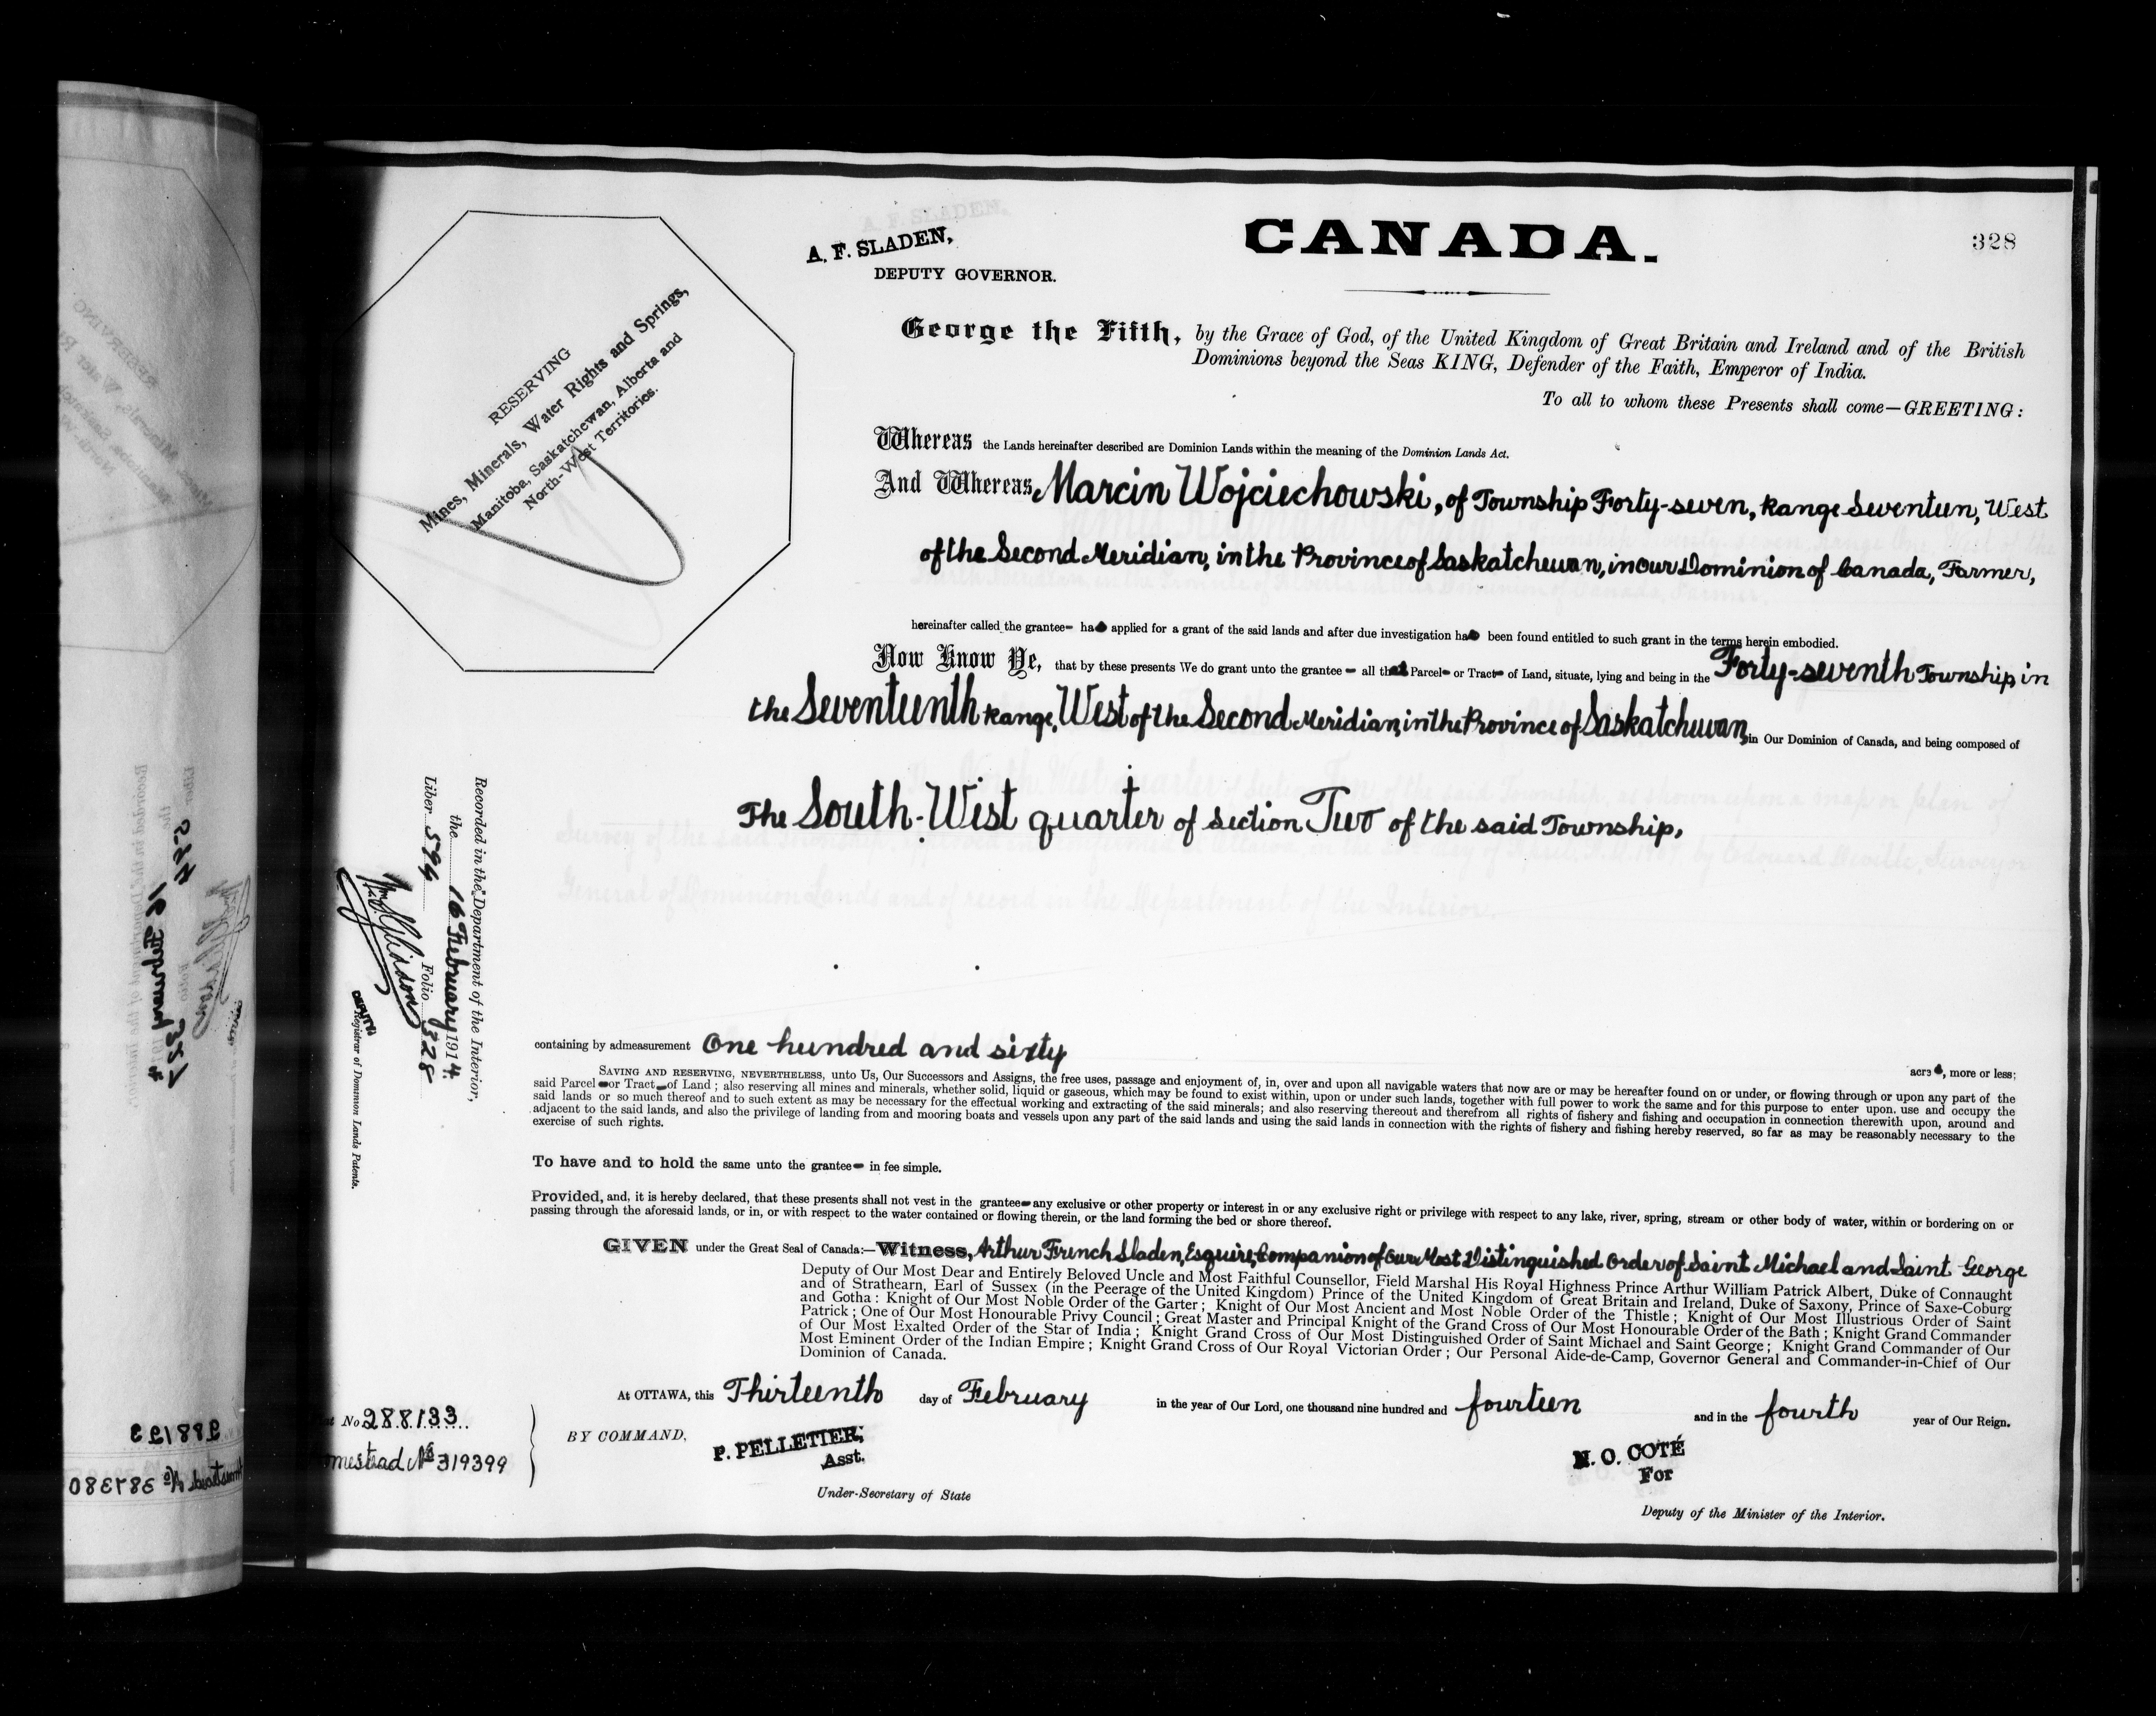 328
A. F. SLADEN,
DEPUTY GOVERNOR.
CANADA.
RESERVING
Mines, Minerals, Water Rights and Springs,
Manitoba, Saskatchewan, Alberta and
North-West Territories.
George the Fifth, by the Grace of God, of the United Kingdom of Great Britain and Ireland and of the British
Dominions beyond the Seas KING, Defender of the Faith, Emperor of India.
To all to whom these Presents shall come—GREETING:
Whereas the Lands hereinafter described are Dominion Lands within the meaning of the Dominion Lands Act.
And Whereas Marcin Wojciechowski, of Township Forty-seven, Range Seventeen, West
of the Second Meridian, in the Province of Saskatchewan, in our Dominion of Canada, Farmer,
hereinafter called the grantee- has applied for a grant of the said lands and after due investigation has been found entitled to such grant in the terms herein embodied.
Now Know Ye, that by these presents We do grant unto the grantee - all that Parcel- or Tract- of Land, situate, lying and being in the Forty-seventh Township in
the Seventeenth Range, West of the Second Meridian, in the Province of Saskatchewan, in Our Dominion of Canada, and being composed of
The South-West quarter of Section Two of the said Township,
Recorded in the Department of the Interior,
the 16 February 1914.
Liber 594 Folio 328
DEPUTY Registrar of Dominion Lands Patents.
containing by admeasurement One hundred and sixty acres, more or less;
SAVING AND RESERVING, NEVERTHELESS, unto Us, Our Successors and Assigns, the free uses, passage and enjoyment of, in, over and upon all navigable waters that now are or may be hereafter found on or under, or flowing through or upon any part of the
said Parcel-or Tract-of Land; also reserving all mines and minerals, whether solid, liquid or gaseous, which may be found to exist within, upon or under such lands, together with full power to work the same and for this purpose to enter upon, use and occupy the
said lands or so much thereof and to such extent as may be necessary for the effectual working and extracting of the said minerals; and also reserving thereout and therefrom all rights of fishery and fishing and occupation in connection therewith upon, around and
adjacent to the said lands, and also the privilege of landing from and mooring boats and vessels upon any part of the said lands and using the said lands in connection with the rights of fishery and fishing hereby reserved, so far as may be reasonably necessary to the
exercise of such rights.
To have and to hold the same unto the grantee- in fee simple.
Provided, and, it is hereby declared, that these presents shall not vest in the grantee-any exclusive or other property or interest in or any exclusive right or privilege with respect to any lake, river, spring, stream or other body of water, within or bordering on or
passing through the aforesaid lands, or in, or with respect to the water contained or flowing therein, or the land forming the bed or shore thereof.
GIVEN under the Great Seal of Canada:—Witness, Arthur French Sladen, Esquire, Companion of Our Most Distinguished Order of Saint Michael and Saint George
Deputy of Our Most Dear and Entirely Beloved Uncle and Most Faithful Counsellor, Field Marshal His Royal Highness Prince Arthur William Patrick Albert, Duke of Connaught
and of Strathearn, Earl of Sussex (in the Peerage of the United Kingdom) Prince of the United Kingdom of Great Britain and Ireland, Duke of Saxony, Prince of Saxe-Coburg
and Gotha: Knight of Our Most Noble Order of the Garter; Knight of Our Most Ancient and Most Noble Order of the Thistle; Knight of Our Most Illustrious Order of Saint
Patrick; One of Our Most Honourable Privy Council; Great Master and Principal Knight of the Grand Cross of Our Most Honourable Order of the Bath; Knight Grand Commander
of Our Most Exalted Order of the Star of India; Knight Grand Cross of Our Most Distinguished Order of Saint Michael and Saint George; Knight Grand Commander of Our
Most Eminent Order of the Indian Empire; Knight Grand Cross of Our Royal Victorian Order; Our Personal Aide-de-Camp, Governor General and Commander-in-Chief of Our
Dominion of Canada.
At OTTAWA, this Thirteenth day of February in the year of Our Lord, one thousand nine hundred and fourteen and in the fourth year of Our Reign.
No 288133
mestead No 319399
BY COMMAND,
P. PELLETIER,
Asst.
Under-Secretary of State
N. O. COTÉ
For
Deputy of the Minister of the Interior.